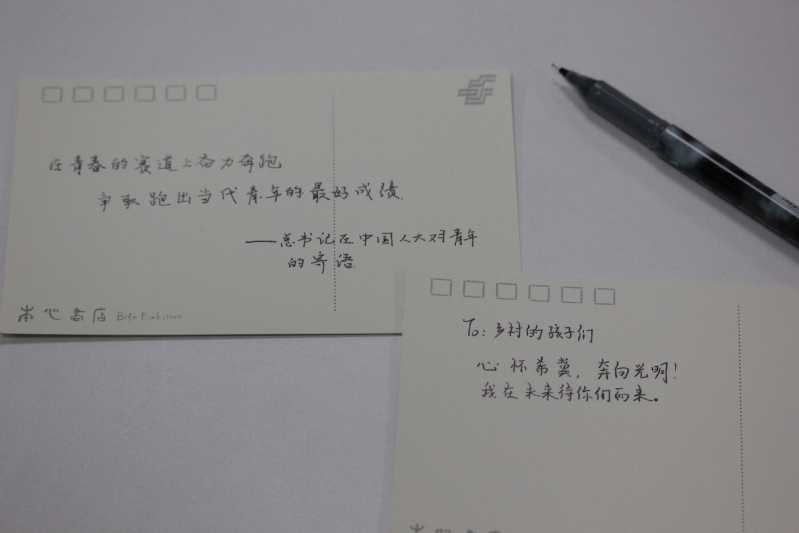 在青春的赛道上奋力奔跑
争取跑出当代青年的最好成绩.
——总书记在中国人大对青年
的寄语.
书店
To: 乡村的孩子们
心怀希冀, 奔向光明!
我在未来待你们而来。